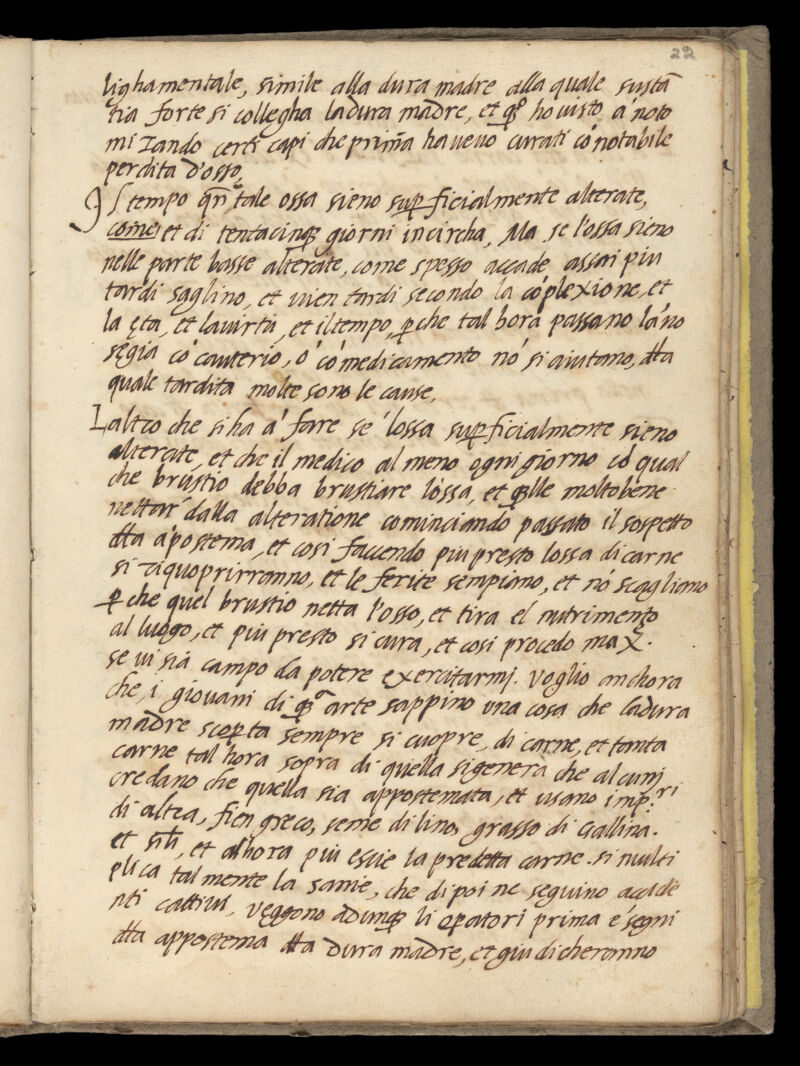 22
lighamentale, simile alla dura madre alla quale sustā
tia forte si collegha la dura madre, et q̄sto ho visto, a noto
mi zando certi capi che prima havevo curati cō notabile
perdita d'osso,
Il tempo qn̄ tale ossa sieno sup̲ficialmente alterate,
come et di tentacinq̄ giorni in circha, Ma se l'ossa sieno
nelle parte basse alterate, come spesso accade assai piu
tardi saglino, et vien tardi secondo la cōplexione, et
la ęta, et la virtu, et il tempo, p̱che tal hora passano lāno
sęgia cō cauterio, ó cō medicamento nō si aiutano, dlla
quale tardita molte sono le cause,
Laltro che si ha á fare se lossa sup̱ficialmente sieno
alterate, et che il medico al meno ogni giorno cō qual
che brustio debba brustiare lóssa, et q̄lle molto bene
nettar dalla alteratione cominciando passato il sospetto
dlla apostema, et cosi faccendo piu presto lossa di carne
si riquoprirranno, et le ferite sempiano, et nō scagliano
p̱ che quel brustio netta l'osso, et tira el nutrimento
al luogo, et piu presto si cura, et cosi procedo max.
se vi sia campo da potere exercitarmj. Voglio anchora
che, i giovani di q̄sta arte sappino una cosa che la dura
madre scop̱ta sempre si cuopre, di carne, et tanta
carne tal hora sopra di quella si genera che alcunj
credano che quella sia appostemata, et usano imp.ri
di altea, fien greco, seme di lino, grasso di Gallina.
et sīli, et alhora piu escie la predetta carne. si multi
plica talmente la sanie, che dipoi ne seguino accidē
nti cattivi, vęggono adunq̄ li op̱atori prima e segni
dlla appostema dlla dura madre, et giudicheranno